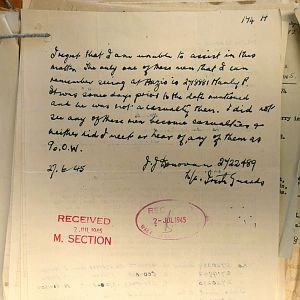 174 H
I regret that I am unable to assist in this
matter. The only one of these men that I can
remember seeing at Anzio is 2718981 Manly P.
It was some days prior to the date mentioned
and he was not a casualty then. I did not
see any of these men become casualties or
neither did I meet or hear of any of them as
P.O.W.
27.6.45
J J Donovan 2722489
Irish Guards
RECEIVED
2 JUL 1945
M. SECTION
2-JUL 1945